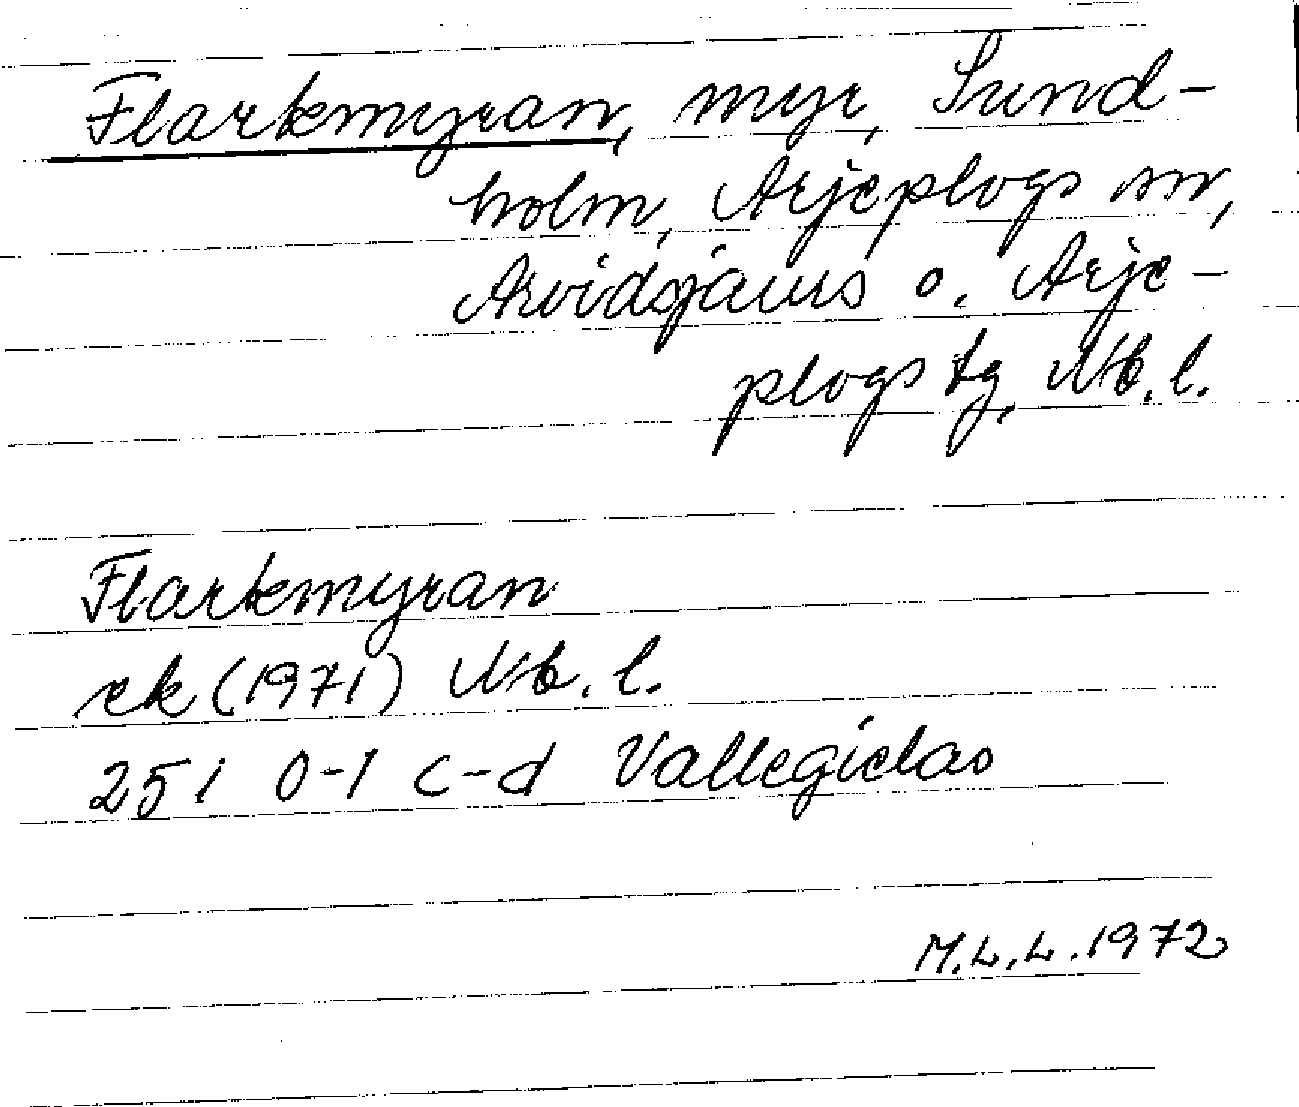 Flarkemyran, myr, Sund-
holm, Arjeplogs sn,
Arvidsjaurs o. Arje-
plogs tg, Nb. l.
Flarkemyran
ek (1971) Nb. l.
25 i 0-1 c-d Vallegielas
M.L.L. 1972